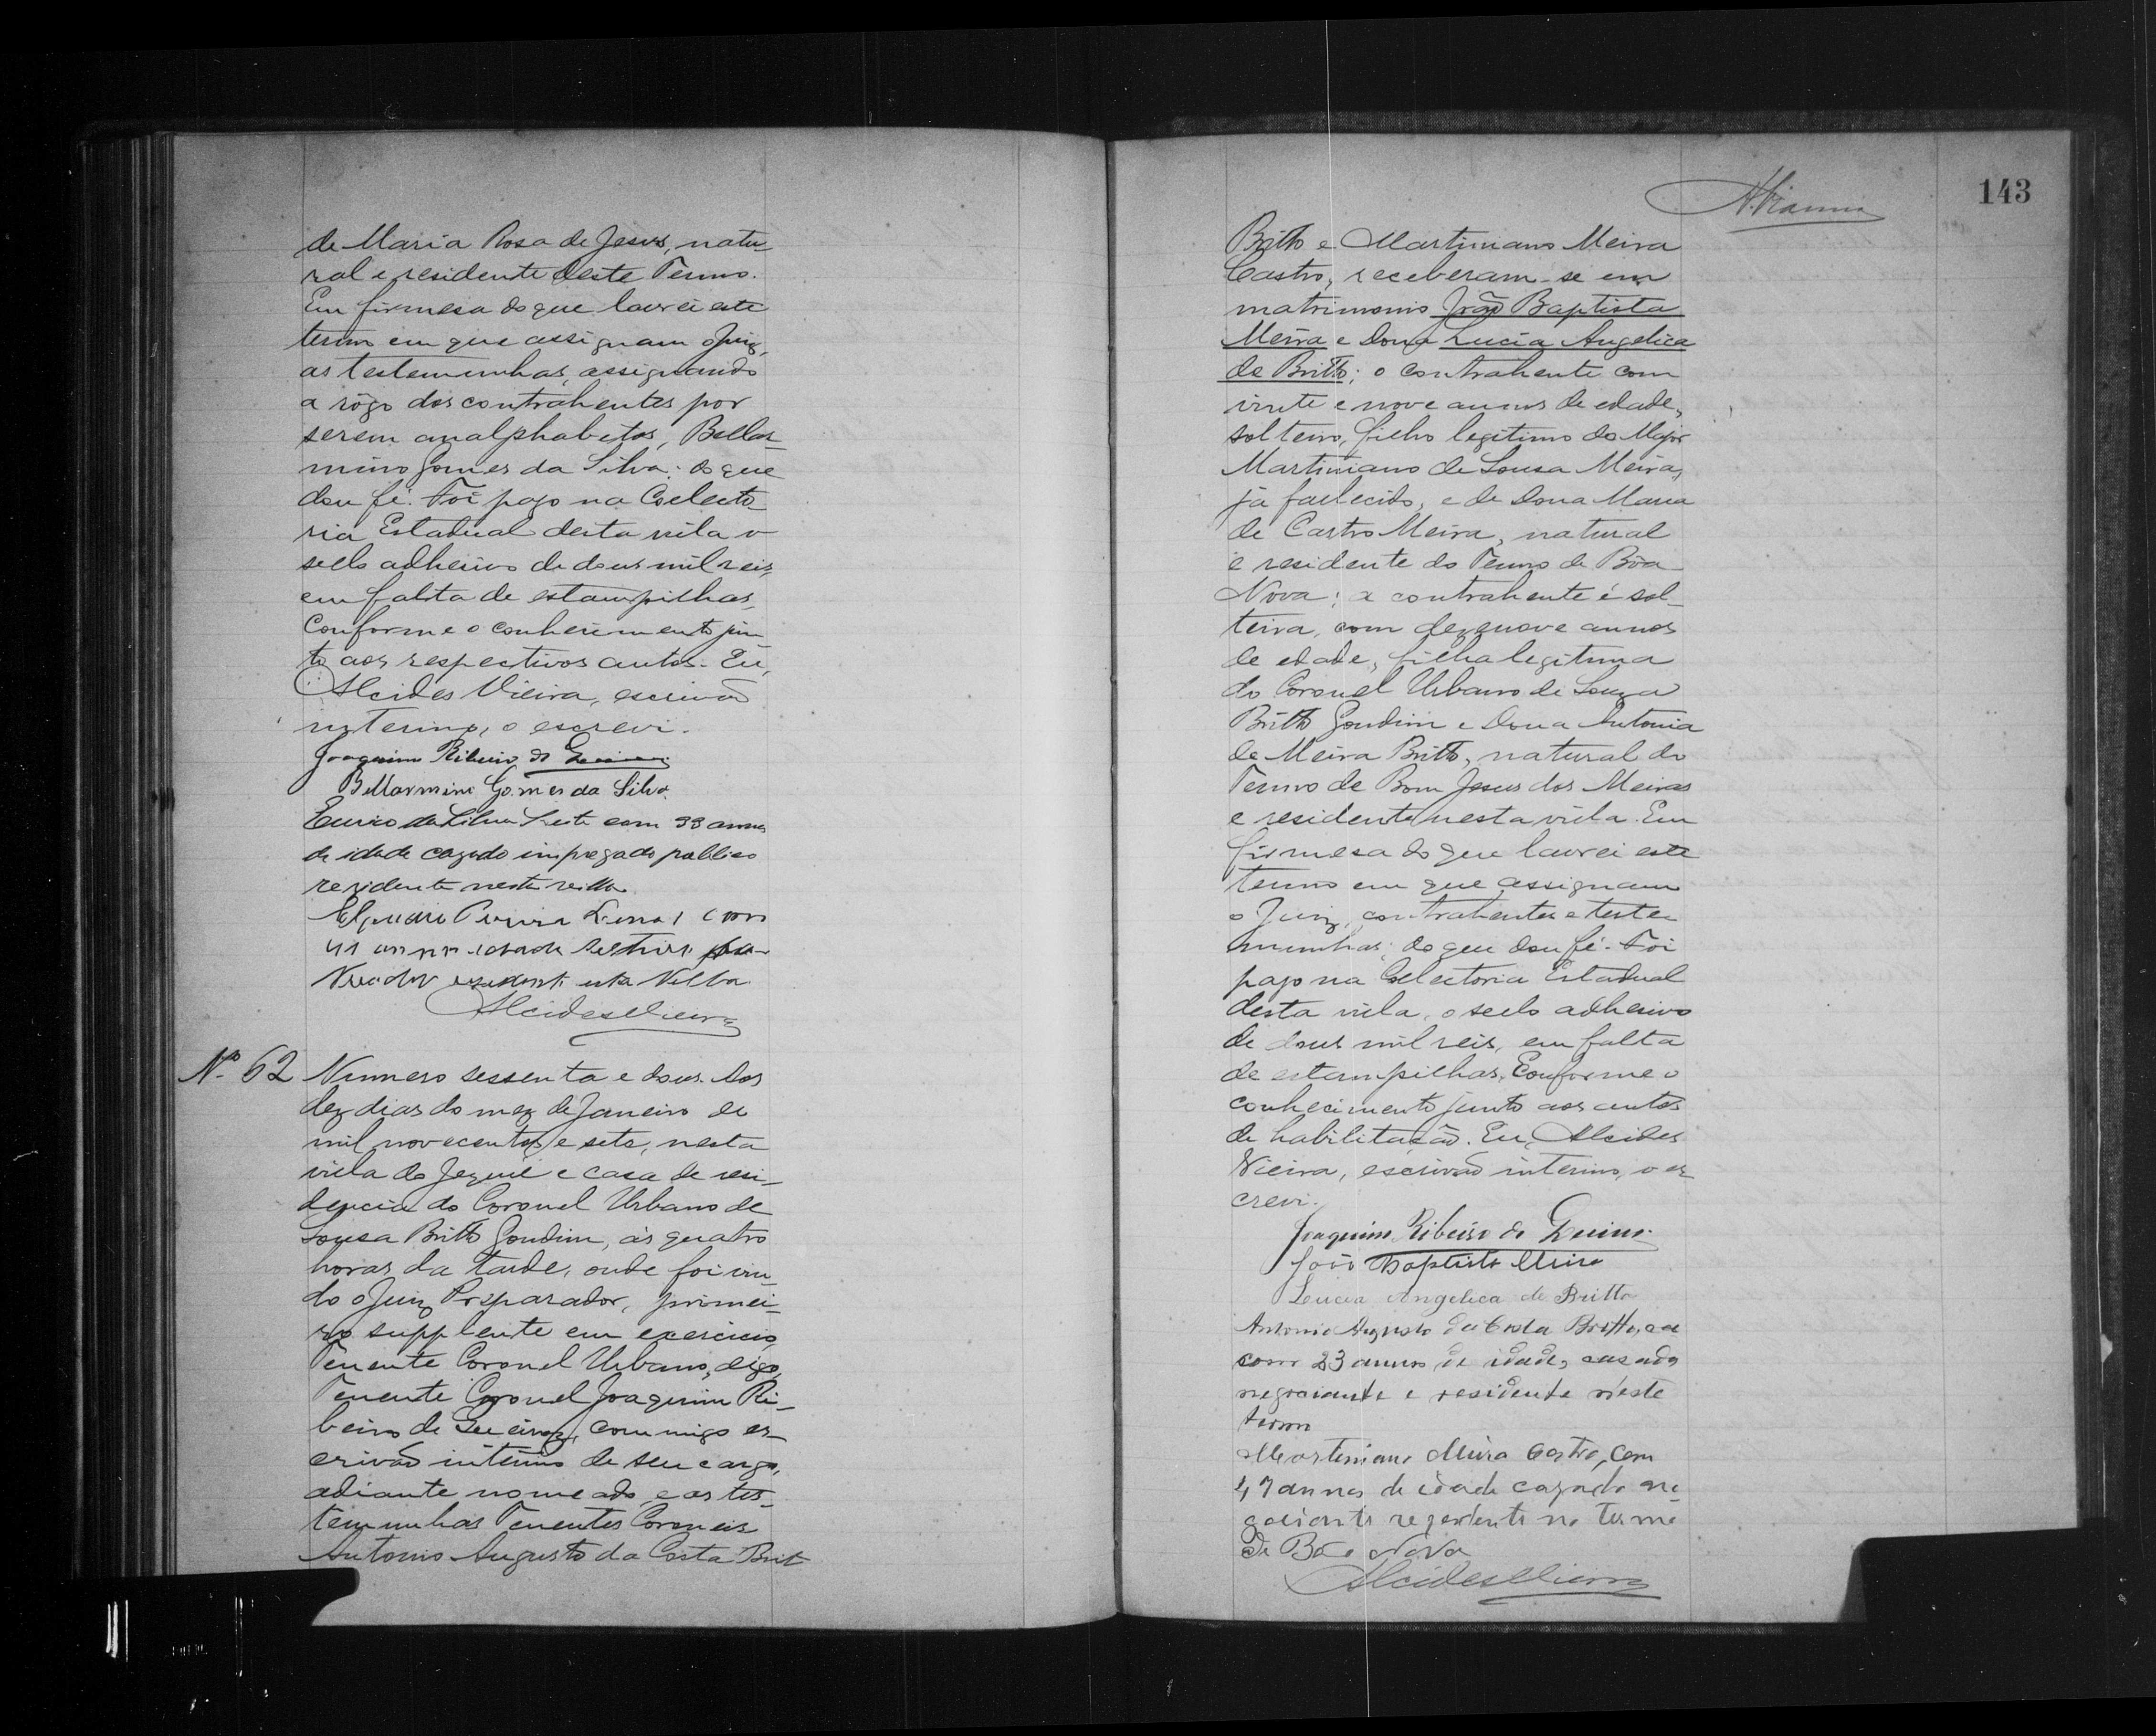 de Maria Rosa de Jesus, natu-
ral e residente deste Termo.
Em firmesa do que lavrei este
termo em que assignam o Juiz,
as testemunhas, assignando
a rôgo dos contrahentes por
serem analphabetos, Bellar-
mino Gomes da Silva: do que
dou fé. Foi pago na Collecto-
ria Estadual desta villa o
sello adhesivo de dous mil reis,
em falta de estampilhas,
Conforme o conhecimento jun-
to aos respectivos autos. Eu,
Alcides Vieira, escrivão
interino, o escrevi.
Joaquim Ribeiro de
Bellarmino Gomes da Silva.
Eurico da Silva Leite com 33 annos
de idade cazado impregado publico
rezidente nesta villa
Pereira com
41 idade
Villa
Alcides Vieira
Nº 62 Numero sessenta e dous. Aos
dez dias do mez de Janeiro de
mil novecentos e sete, nesta
villa do Jequié e casa de resi-
dencia do Coronel Urbano de
Sousa Britto Gondim, às quatro
horas da tarde, onde foi vin-
do o Juiz Preparador, primei-
ro supplente em exercicio,
Tenente Coronel Urbano, digo,
Tenente Coronel Joaquim Ri-
beiro de Queiroz, commigo es-
crivão interino de seu cargo,
adiante nomeado, e as tes-
temunhas Tenentes Coroneis
Antonio Augusto da Costa Brit
143
Britto e Martiniano Meira
Castro, receberam-se em
matrimonio João Baptista
Meira e Dona Lucia Angelica
de Britto; o contrahente com
vinte e nove annos de edade,
solteiro, filho legitimo do Major
Martiniano de Sousa Meira,
já fallecido, e de Dona Maria
de Castro Meira, natural
e residente do Termo de Bôa
Nova; a contrahente é sol-
teira, com dezenove annos
de edade, filha legitima
do Coronel Urbano de Souza
Britto Gondim e Dona Antonia
de Meira Britto, natural do
Termo de Bom Jesus dos Meiras
e residente nesta villa. Em
firmesa do que lavrei este
termo em que assignam
o Juiz, contrahentes e teste-
munhas; do que dou fé. Foi
pago na Collectoria Estadual
desta villa, o sello adhesivo
de dous mil reis, em falta
de estampilhas, Conforme o
conhecimento junto aos autos
de habilitação. Eu, Alcides
Vieira, escrivão interino, o es-
crevi.
Joaquim Ribeiro de Queiroz
João Baptista Meira
Lucia Angelica de Britto
Antonio Augusto da Costa Britto,
com 23 annos de idade, casado
negociante e residente n'este
termo
Martiniano Meira Castro, com
47 annos de idade cazado ne-
gociante rezidente no termo
de Boa Nova
Alcides Vieira